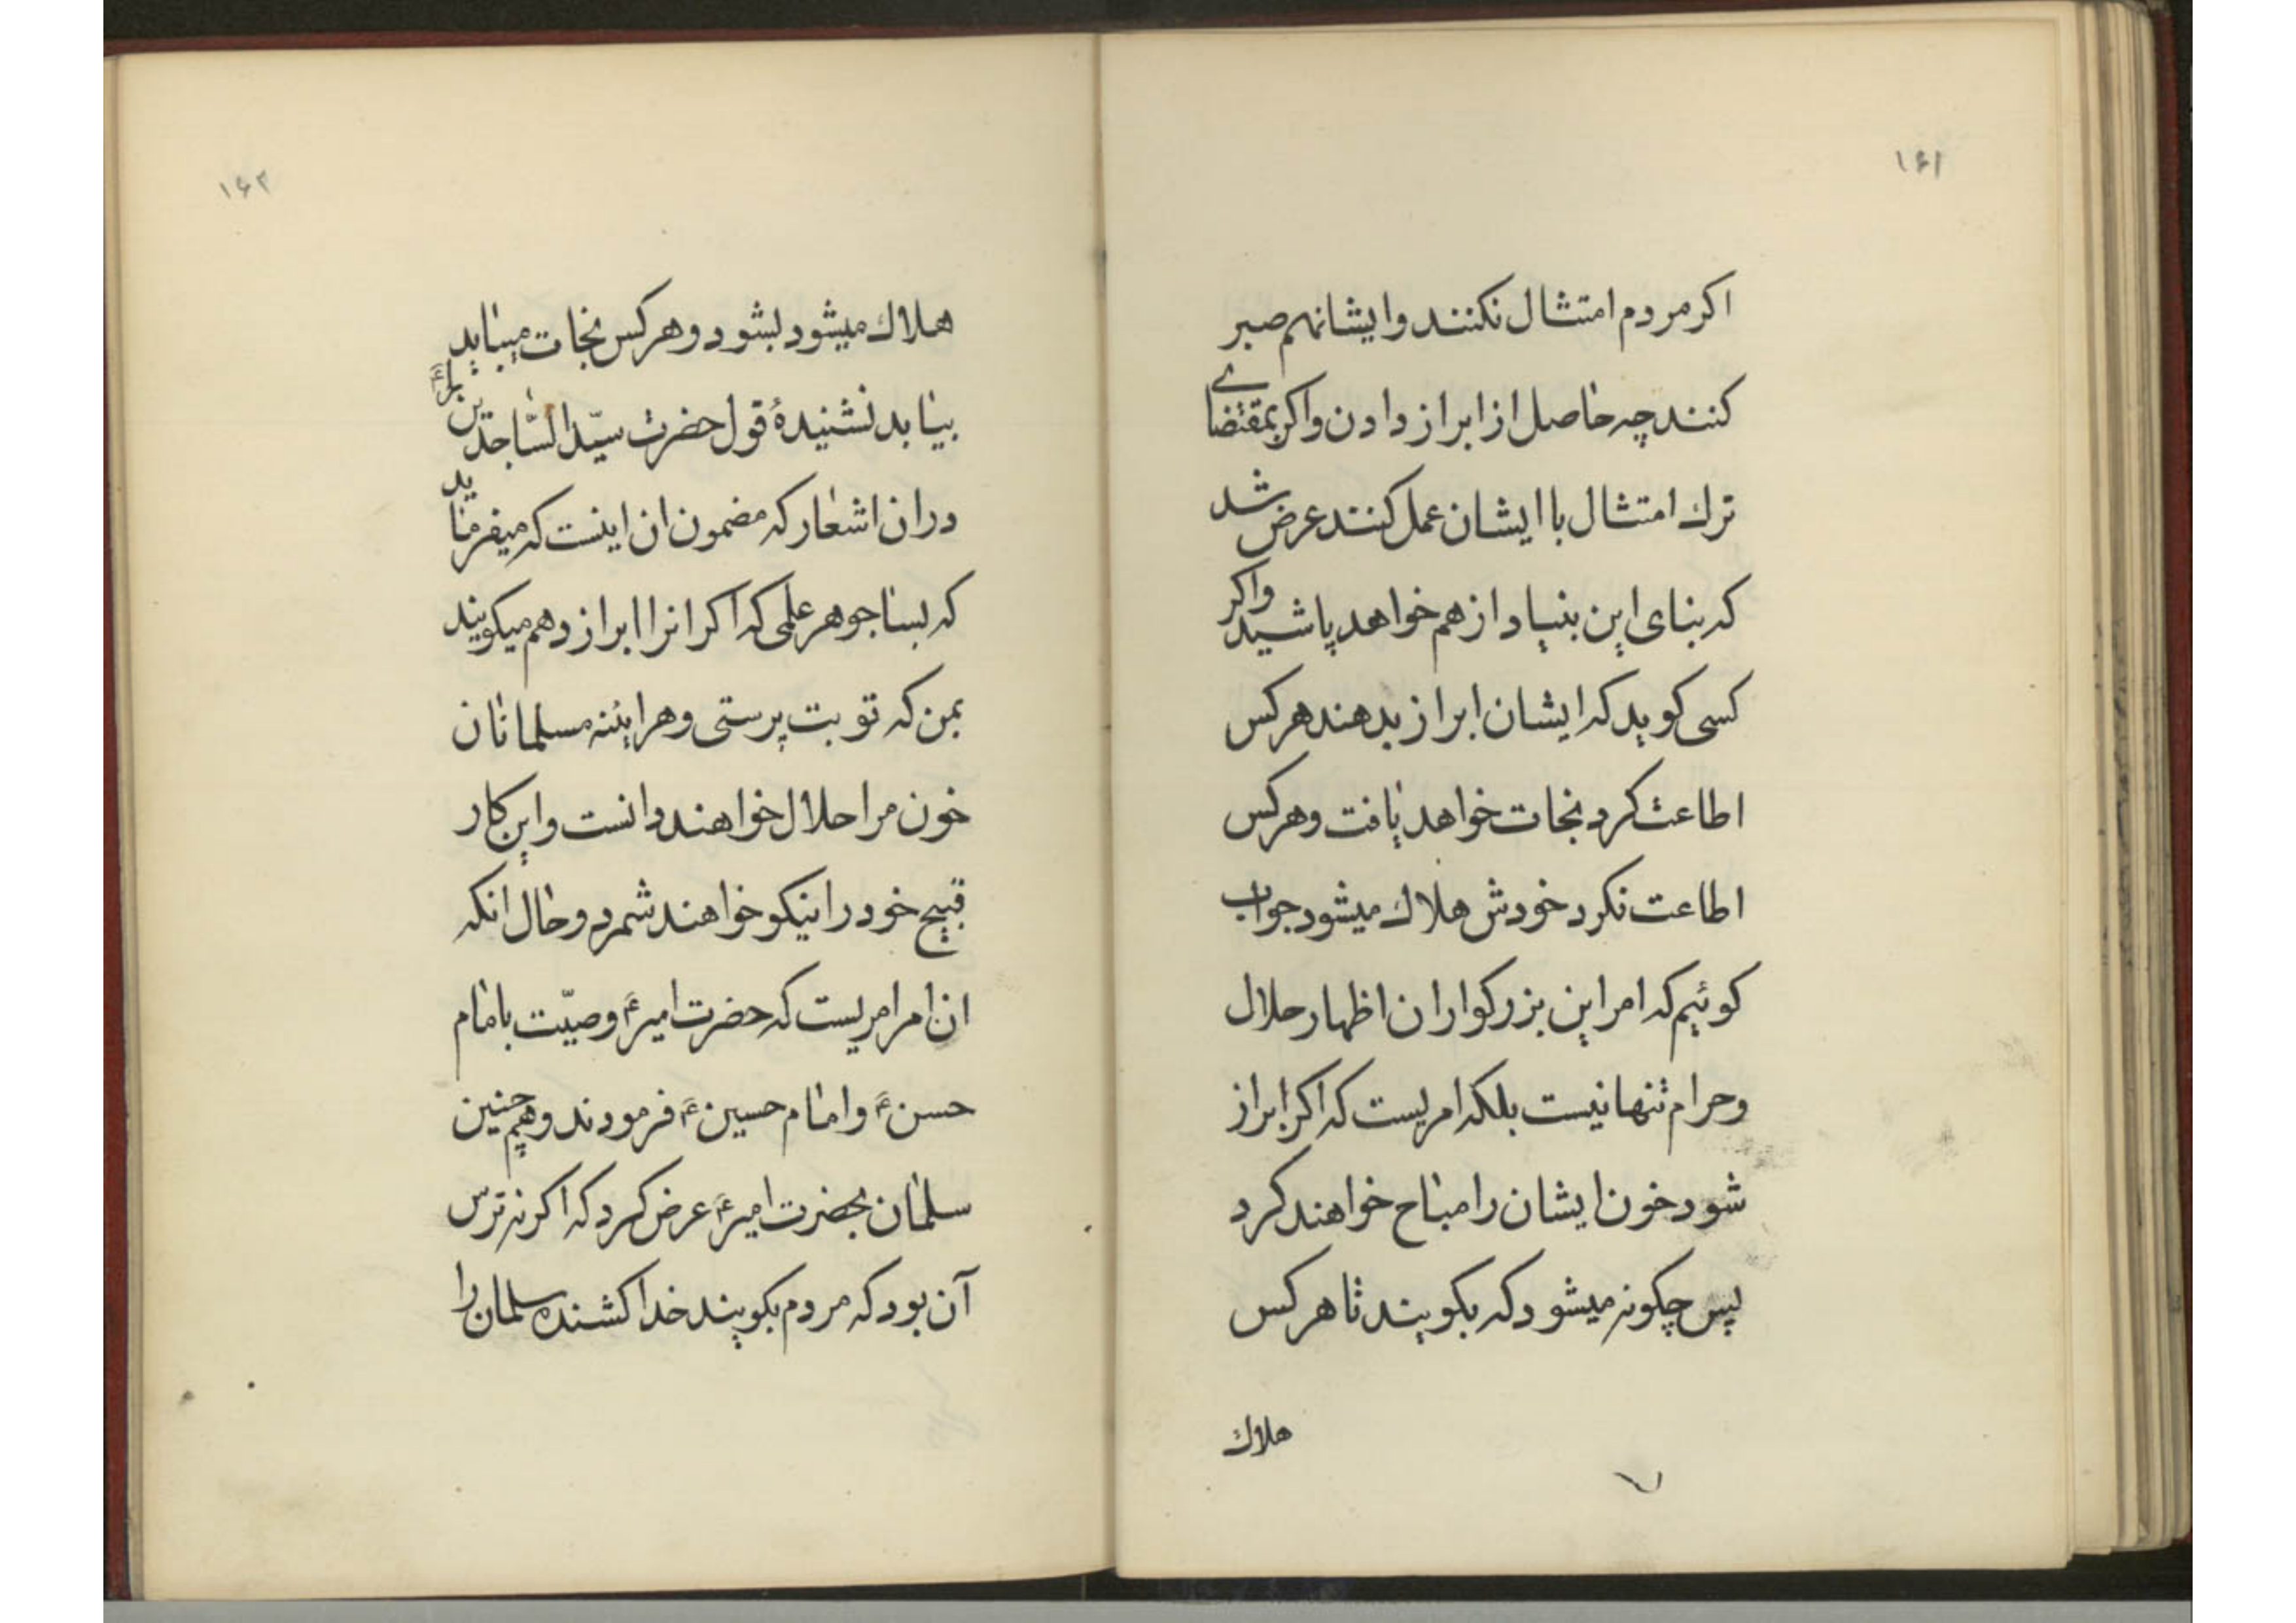 ۱۶۱
اکر مردم امتثال نکنند و ایشانهم صبر
کنند چه حاصل از ابراز دادن و اکر بمقتضای
ترك امتثال با ایشان عمل کنند عرض شد
که بنای این بنیاد از هم خواهد پاشید و اکر
کسی کوید که ایشان ابراز بدهند هر کس
اطاعت کرد نجات خواهد یافت و هر کس
اطاعت نکرد خودش هلاك میشود جواب
کوئیم که امر این بزرکواران اظهار حلال
و حرام تنها نیست بلکه امریست که اکر ابراز
شود خون ایشان را مباح خواهند کرد
پس چکونه میشود که بکویند تا هر کس
هلاك
۱۶۲
هلاك میشود بشود و هر کس نجات میبیابد
بیابد نشنیدهٔ قول حضرت سیّد السّاجدین را
در ان اشعار که مضمون ان اینست که میفرماید
که بسا جوهر علمی که اکر انرا ابراز دهم میکویند
بمن که تو بت پرستی و هراینه مسلمانان
خون مرا حلال خواهند دانست و این کار
قبیح خود را نیکو خواهند شمرد و حال انکه
ان امر امریست که حضرت امیر ع وصیّت بامام
حسن ع و امام حسین ع فرمودند و همچنین
سلمان بحضرت امیر ع عرض کرد که اکر نه ترس
آن بود که مردم بکویند خدا کشنده سلمان را